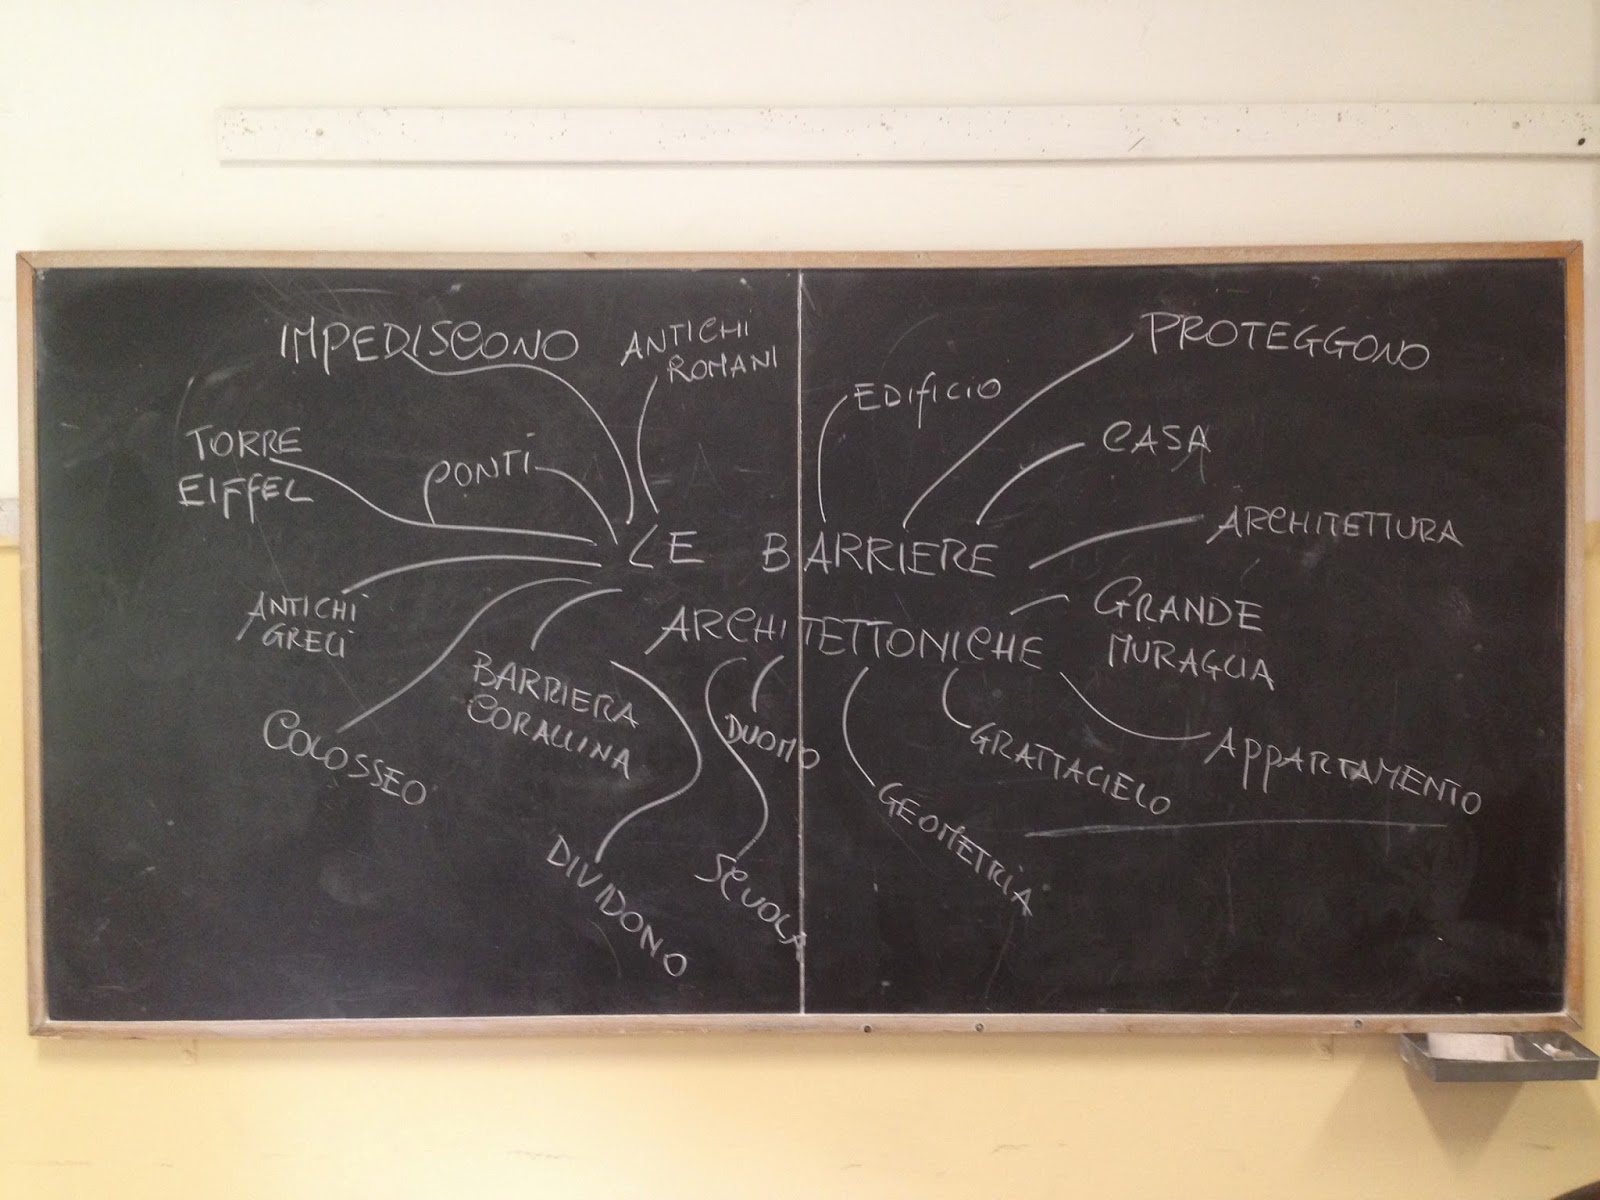 IMPEDISCONO
ANTICHI
ROMANI
EDIFICIO
PROTEGGONO
TORRE
EIFFEL
PONTI
CASA
LE BARRIERE
ARCHITETTONICHE
ARCHITETTURA
ANTICHI
GRECI
GRANDE
MURAGLIA
COLOSSEO
BARRIERA
CORALLINA
DUOMO
GRATTACIELO
APPARTAMENTO
DIVIDONO
SCUOLA
GEOMETRIA